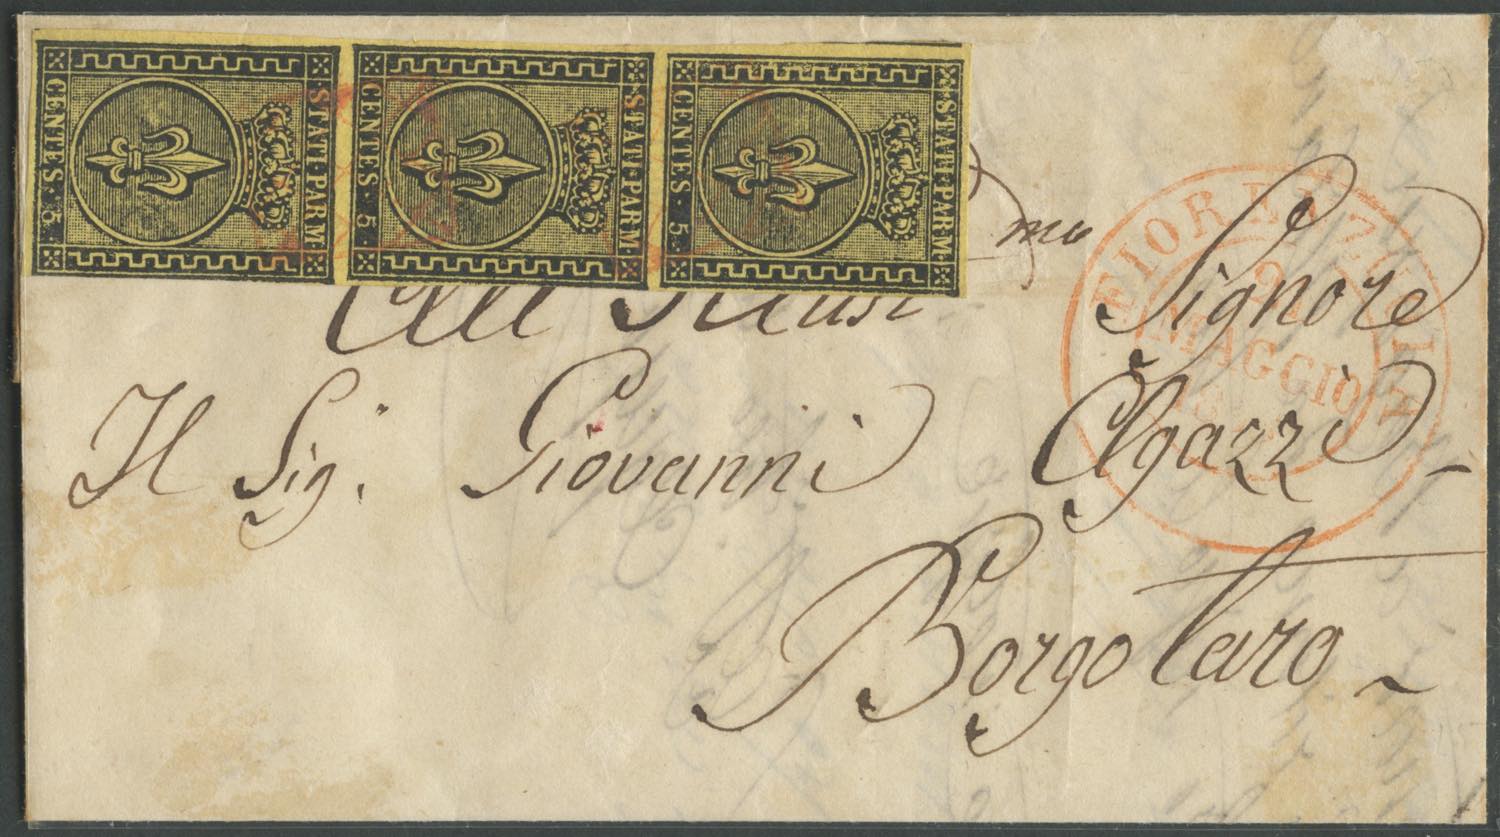 STATI PARM
CENTES. 5
STATI PARM
CENTES 5
STATI PARM
CENTES 5
All' Illust mo Signore
Il Sig. Giovanni Agazzi
Borgotaro
FIORENZUOLA
9
MAGGIO